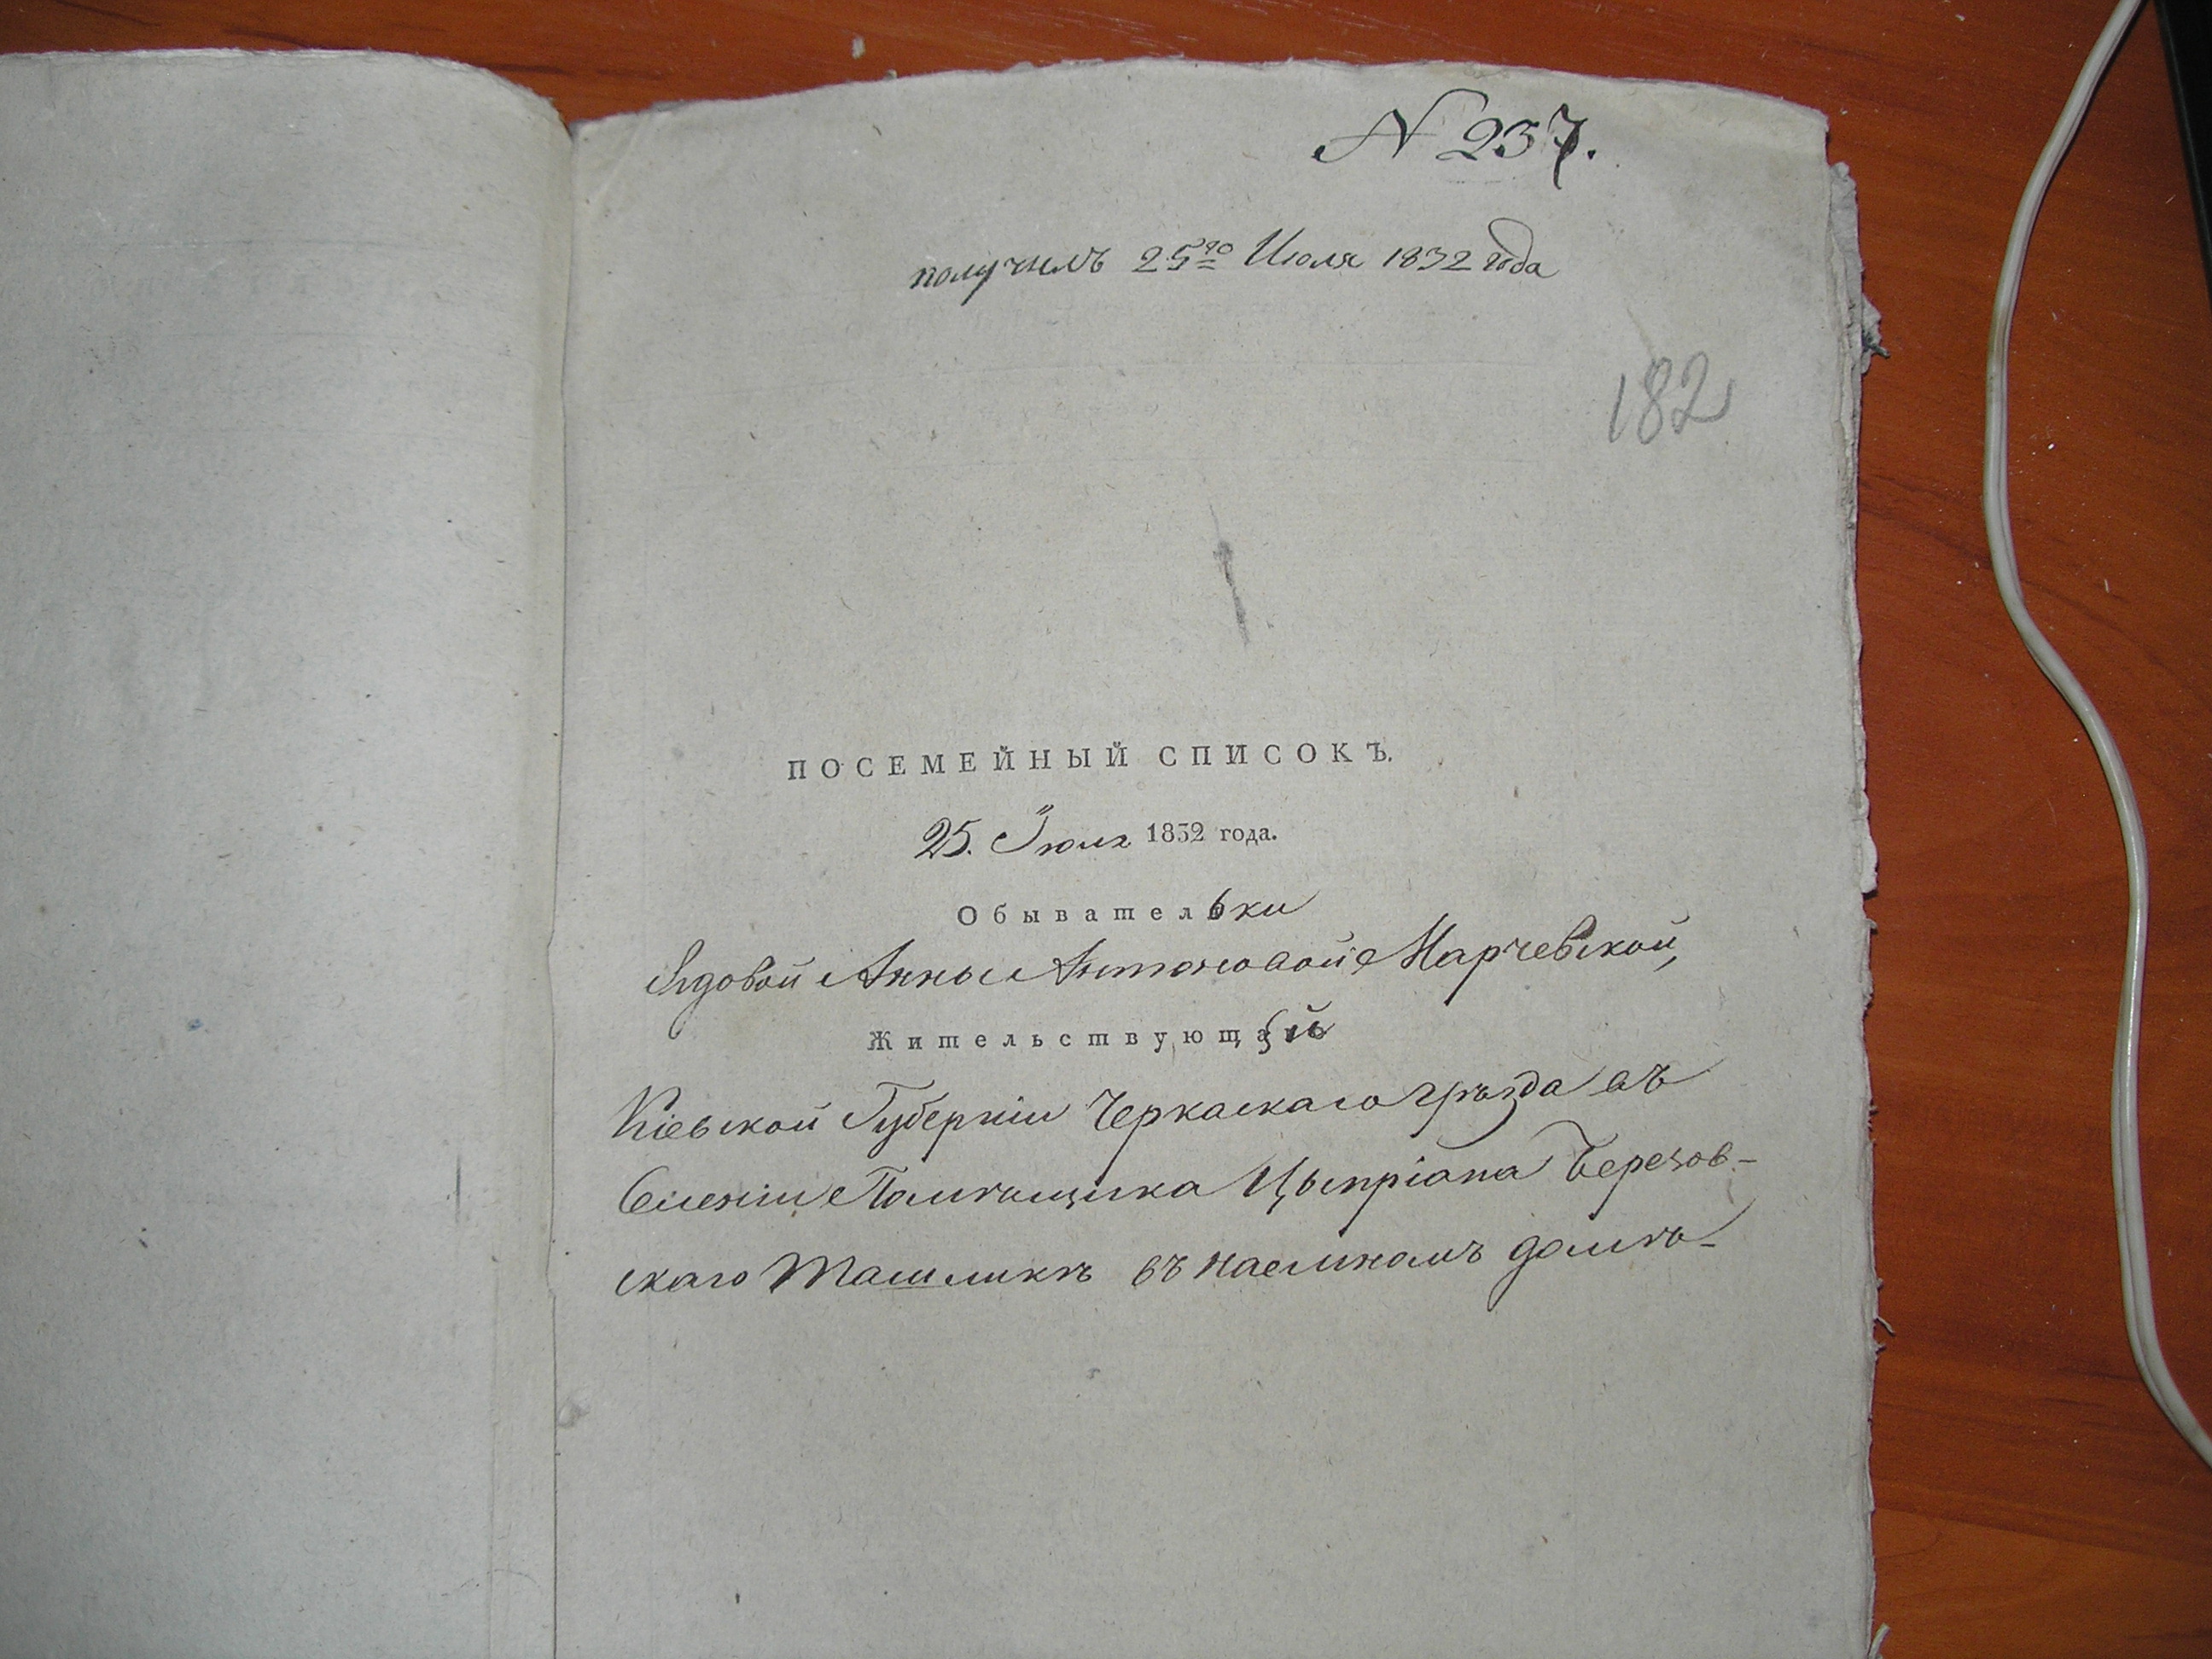 N 237.
получилъ 25го Июля 1832 года
182
ПОСЕМЕЙНЫЙ СПИСОКЪ.
25. Іюля 1832 года.
Обывательки
Вдовой Анны Антоновой Марчевской,
Жительствующей
Кіевской Губерніи Черкаскаго уѣзда въ
Селеніи Помѣщика Цыпріана Березов-
скаго Ташликѣ въ наемномъ домѣ-